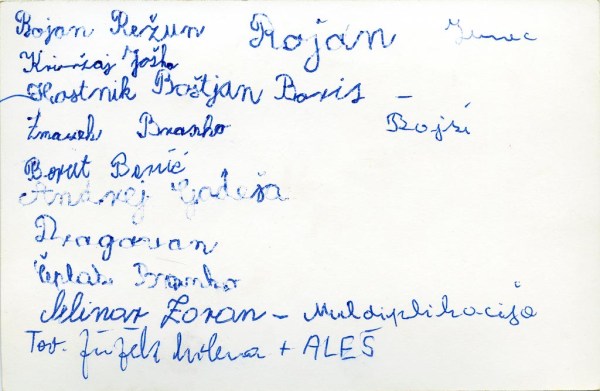 Bojan Režun Rojan
Križaj Joško
Hostnik Boštjan Boris –
Žmavek Branko Bojsi
Borut Benić
Andrej Godeša
Dragovan
Čeplak Branko
Mlinar Zoran – Muldiplikacija
Tov. Milena + ALEŠ